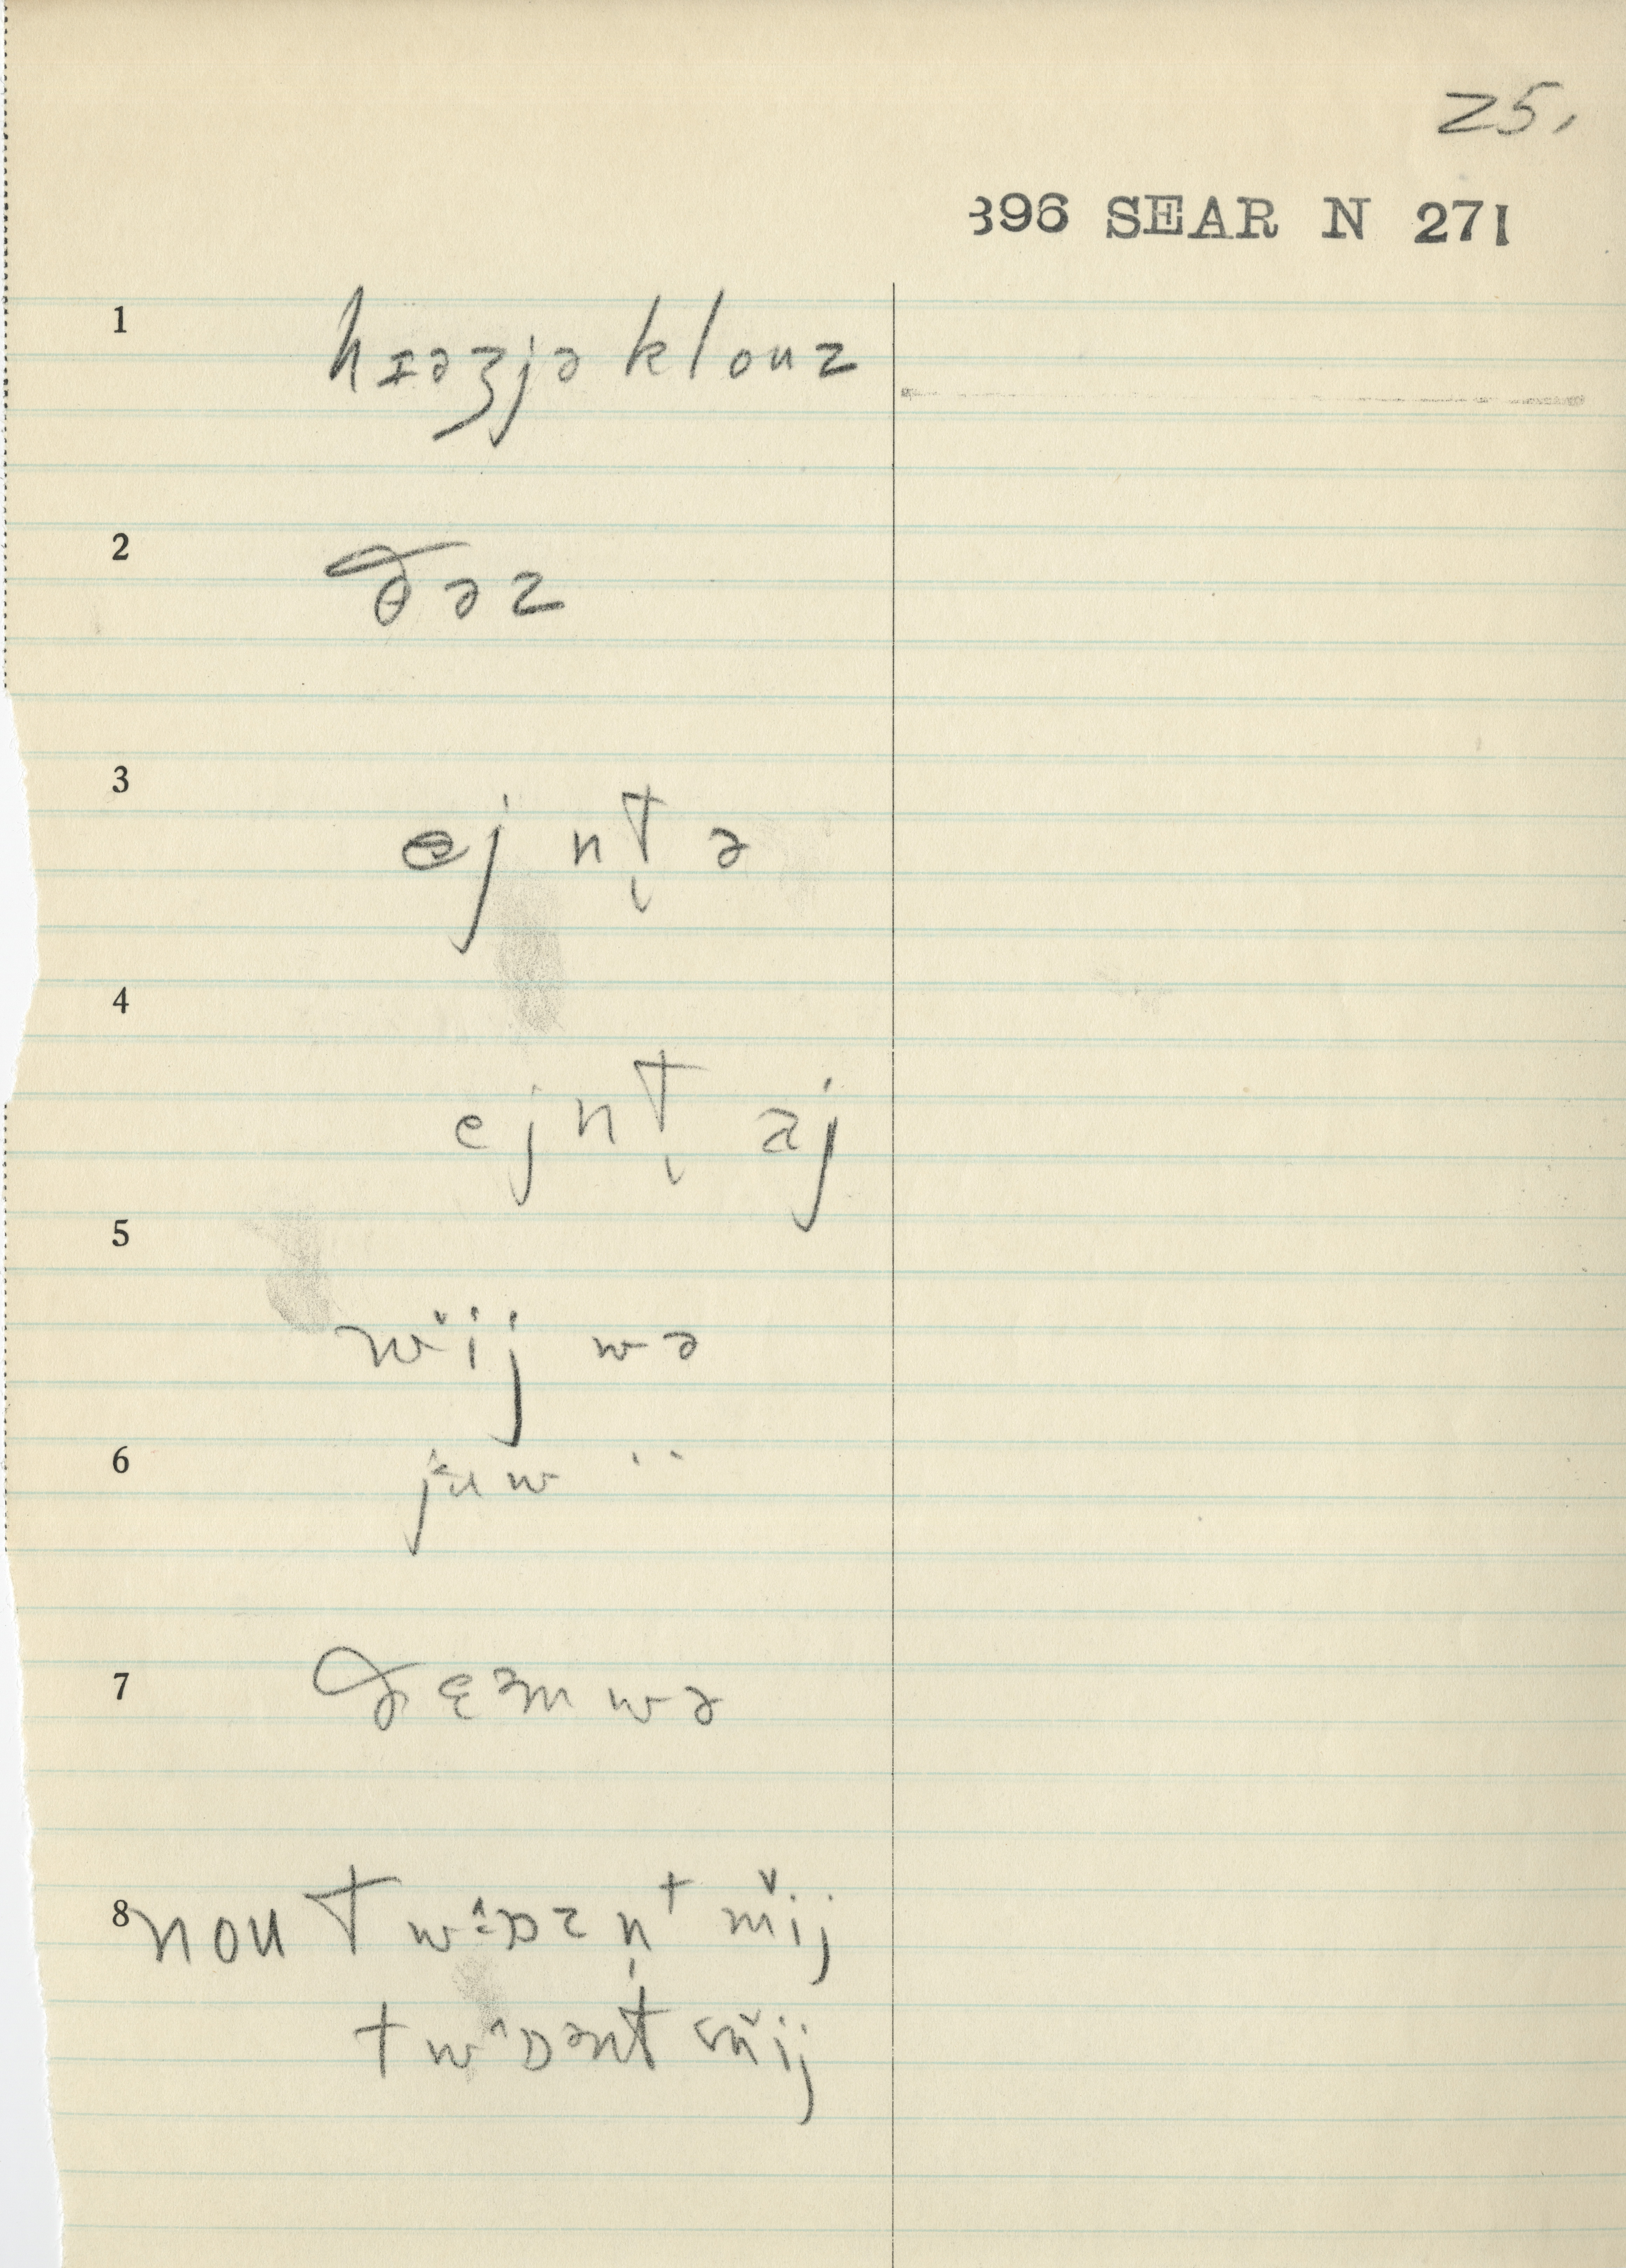 25.
396 SEAR N 271
1 hɪəʒjə klouz
2 ðəz
3 ej nt̬ ə
4 ej nt̬ aj
5 wˇij wə
6 juw
7 ðɛəm wə
8 nou t wˆɒz n̩ t mˇij
t wˆɒ ənt mˇij